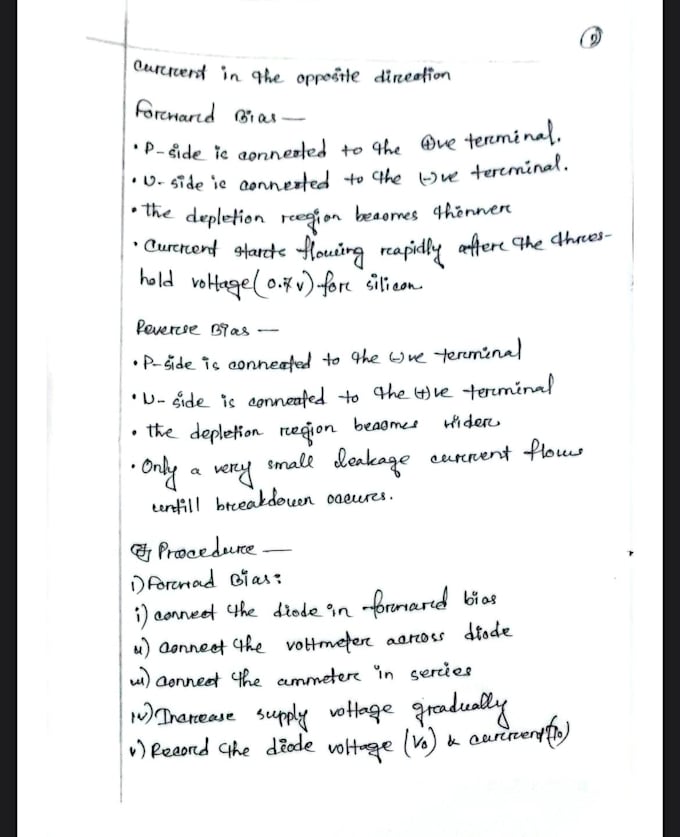 2
current in the opposite direction
Forward Bias —
• P-side is connected to the (+)ve terminal.
• N-side is connected to the (-)ve terminal.
• the depletion region becomes thinner
• Current starts flowing rapidly after the thres-
hold voltage (0.7v) for silicon.
Reverse Bias —
• P-side is connected to the (-)ve terminal
• N-side is connected to the (+)ve terminal
• the depletion region becomes wider
• Only a very small leakage current flows
untill breakdown occures.
Procedure —
i) Forwad Bias:
i) connect the diode in forward bias
ii) connect the voltmeter across diode
iii) connect the ammeter in series
iv) Increase supply voltage gradually
v) Record the diode voltage (VD) & current (ID)